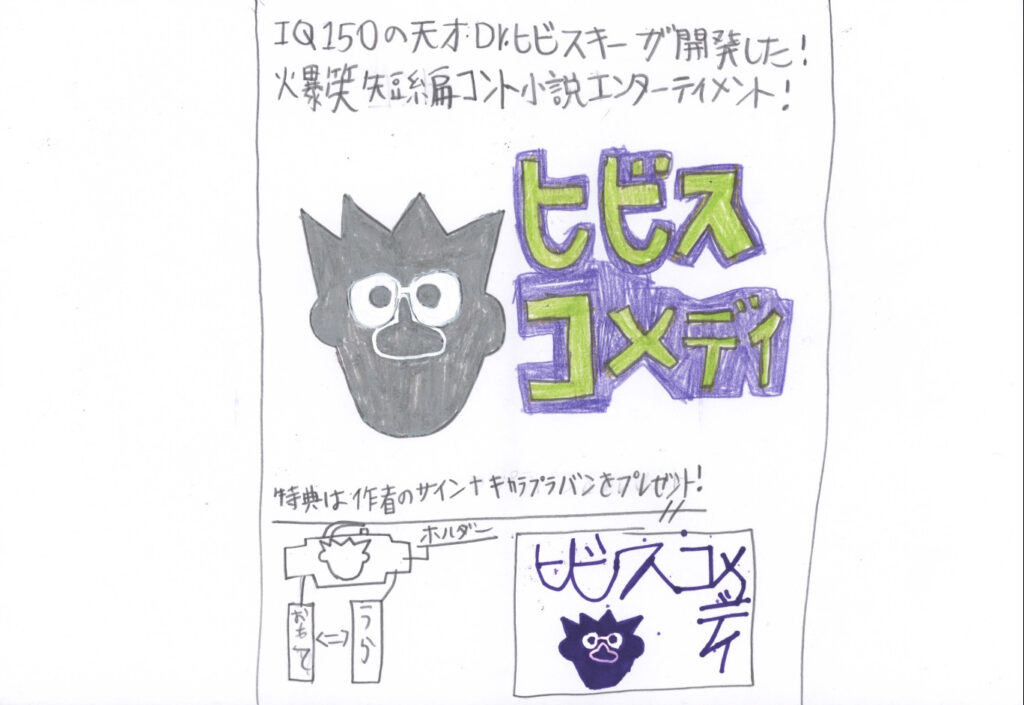 IQ150の天才Dr.ヒビスキーが開発した!
爆笑短編コント小説エンターティメント!
ヒビス
コメディ
特典は作者のサイン+キカラプラバンをプレゼント!
ホルダー
おもて
<=>
うら
ヒビスコメディ